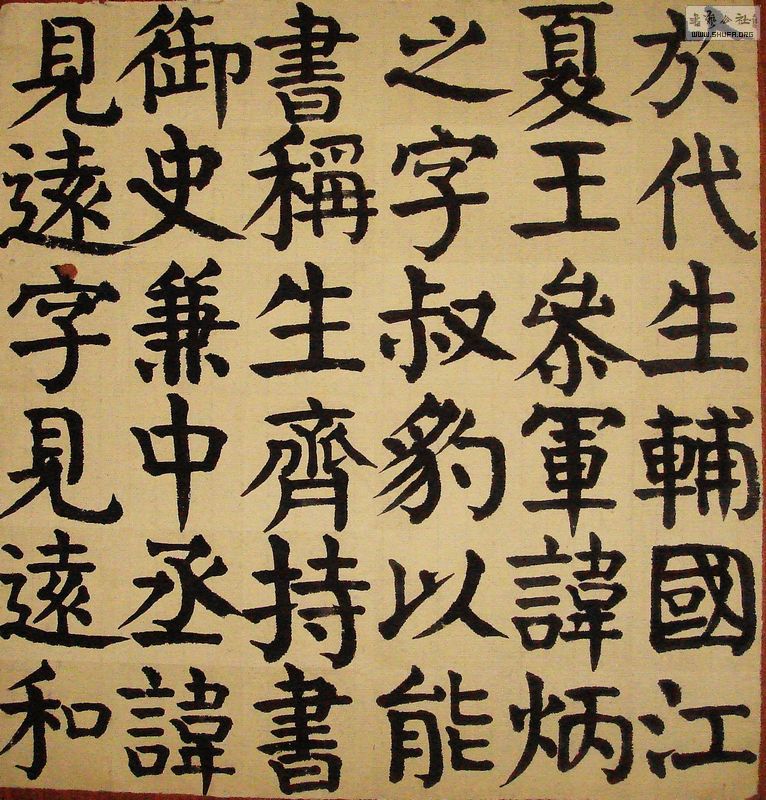 於代生輔國江
夏王叅軍諱炳
之字叔豹以能
書稱生齊持書
御史兼中丞諱
見遠字見遠和
公社
WWW.SHUFA.ORG